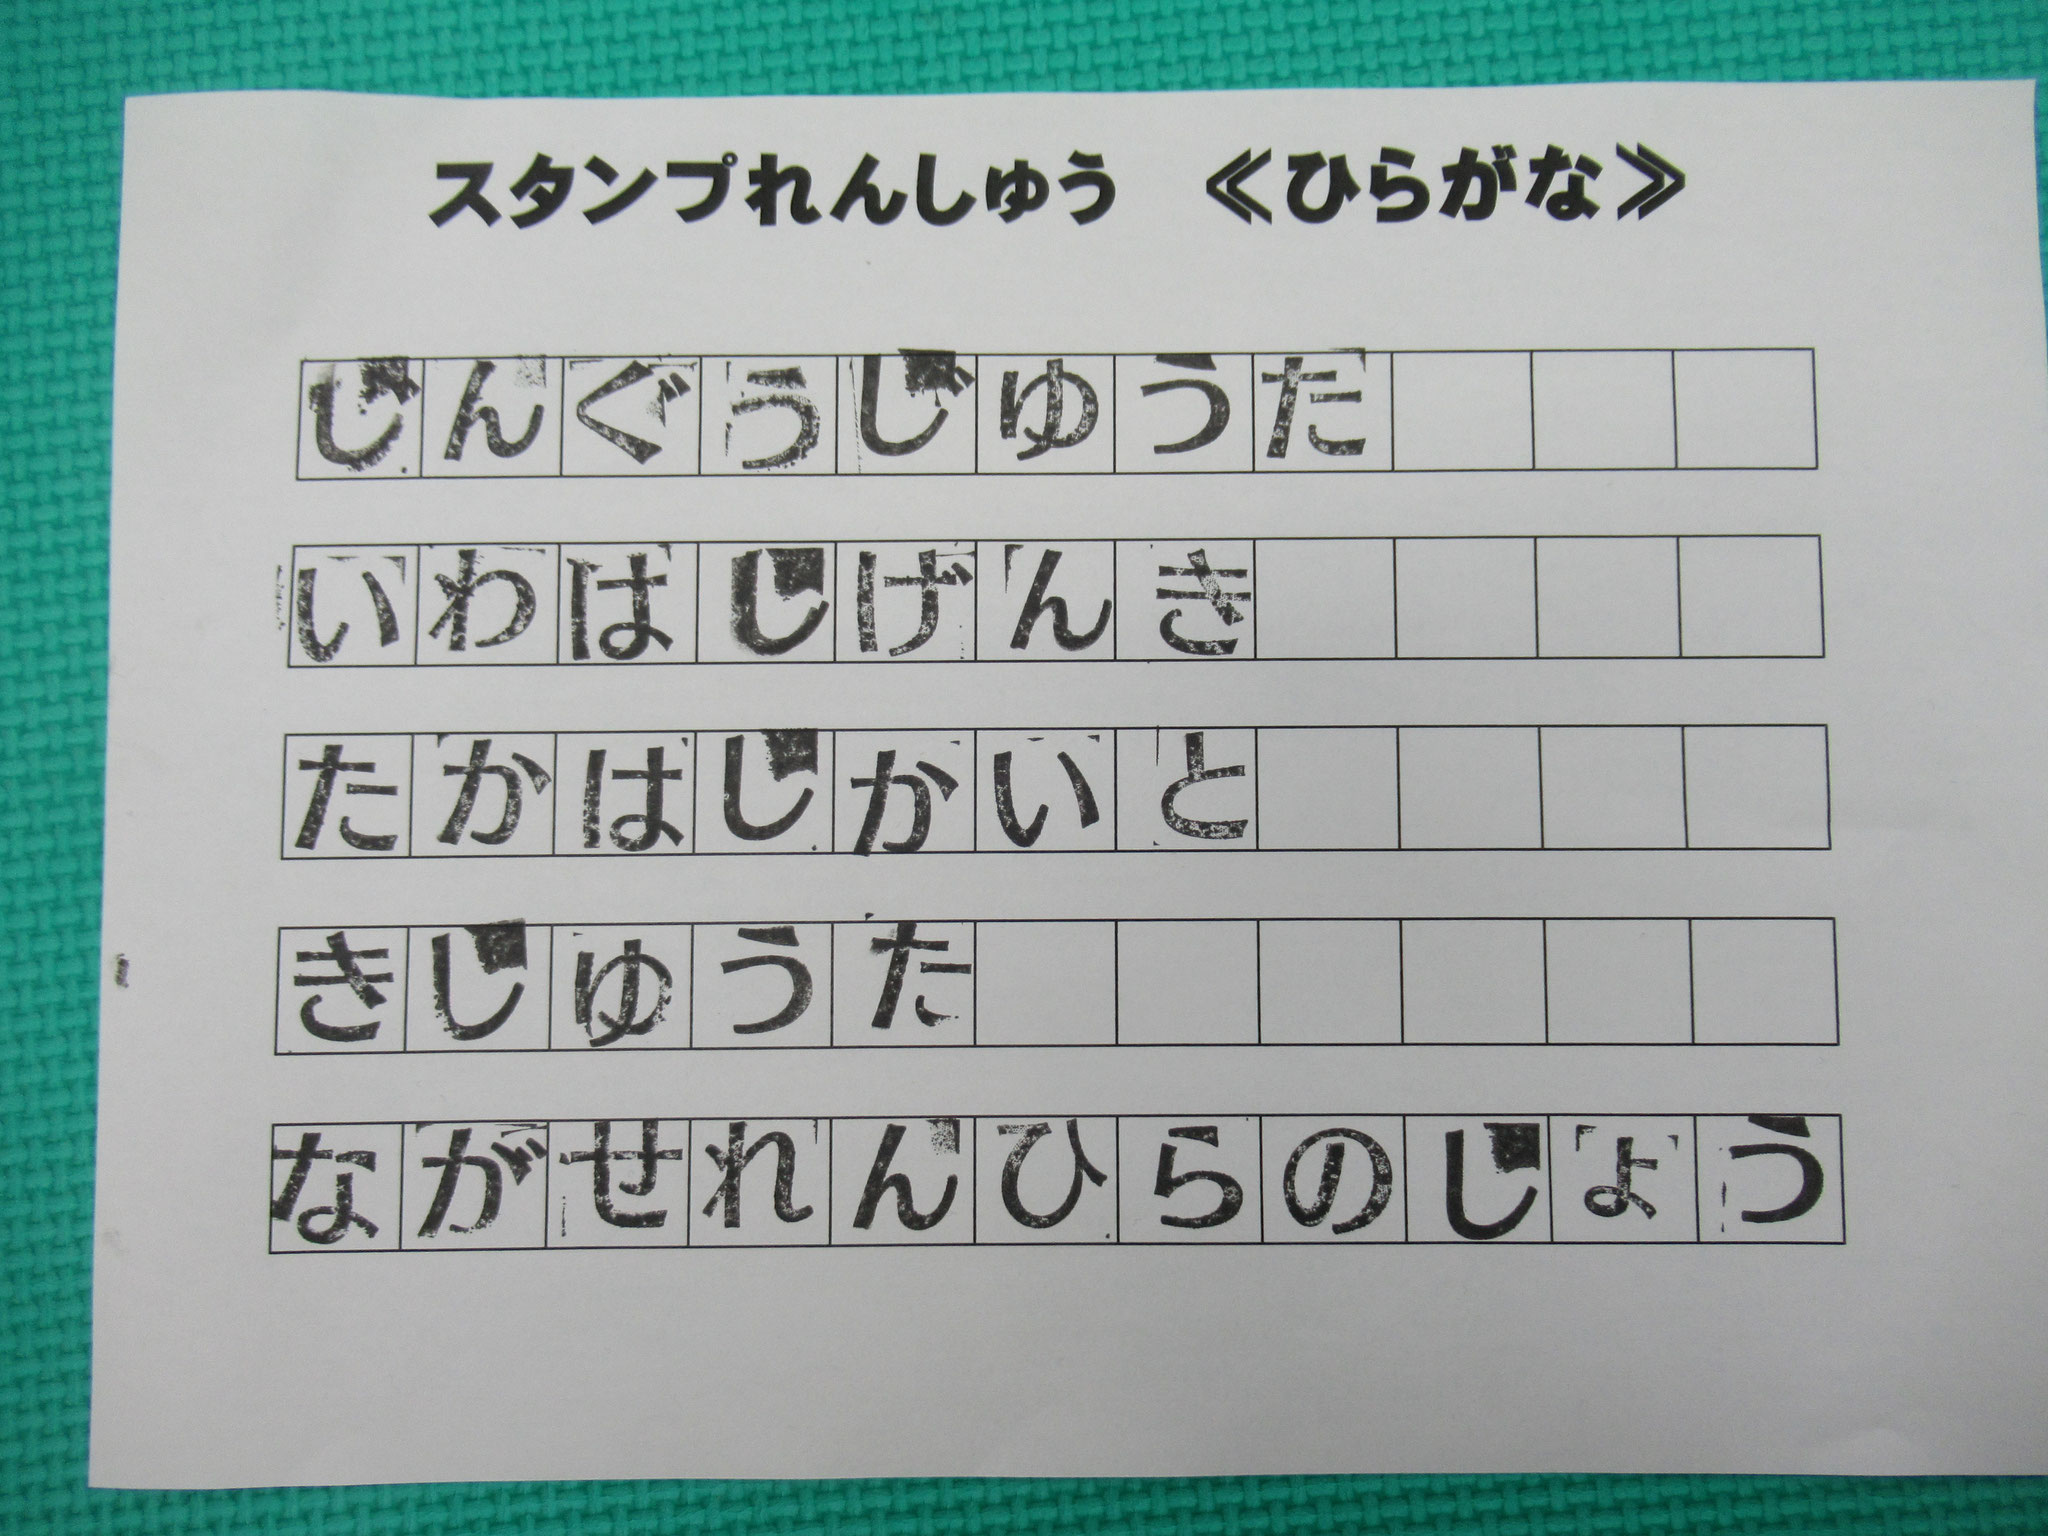 スタンプれんしゅう　≪ひらがな≫
じんぐうじゅうた
いわはしげんき
たかはしかいと
きしゅうた
ながせれんひらのしょう